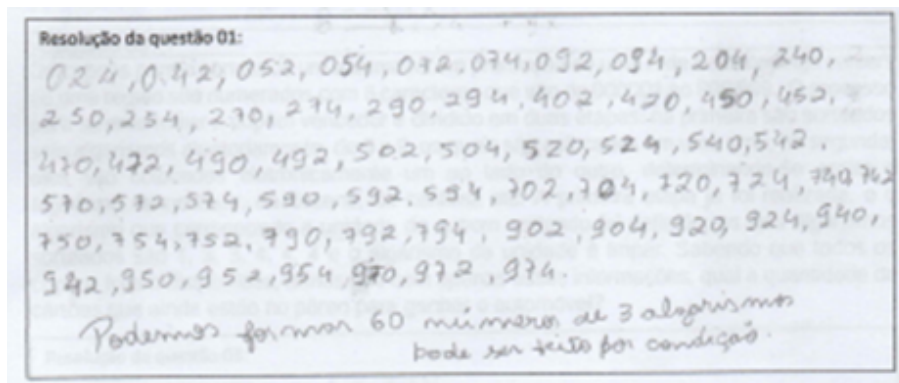 Resolução da questão 01:
024, 042, 052, 054, 072, 074, 092, 094, 204, 240,
250, 254, 270, 274, 290, 294, 402, 420, 450, 452,
470, 472, 490, 492, 502, 504, 520, 524, 540, 542.
570, 572, 574, 590, 592, 594, 702, 704, 720, 724, 740, 742
750, 754, 752, 790, 792, 794, 902, 904, 920, 924, 940,
942, 950, 952, 954, 970, 972, 974.
Podemos formar 60 números de 3 algarismos
pode ser feito por condição.